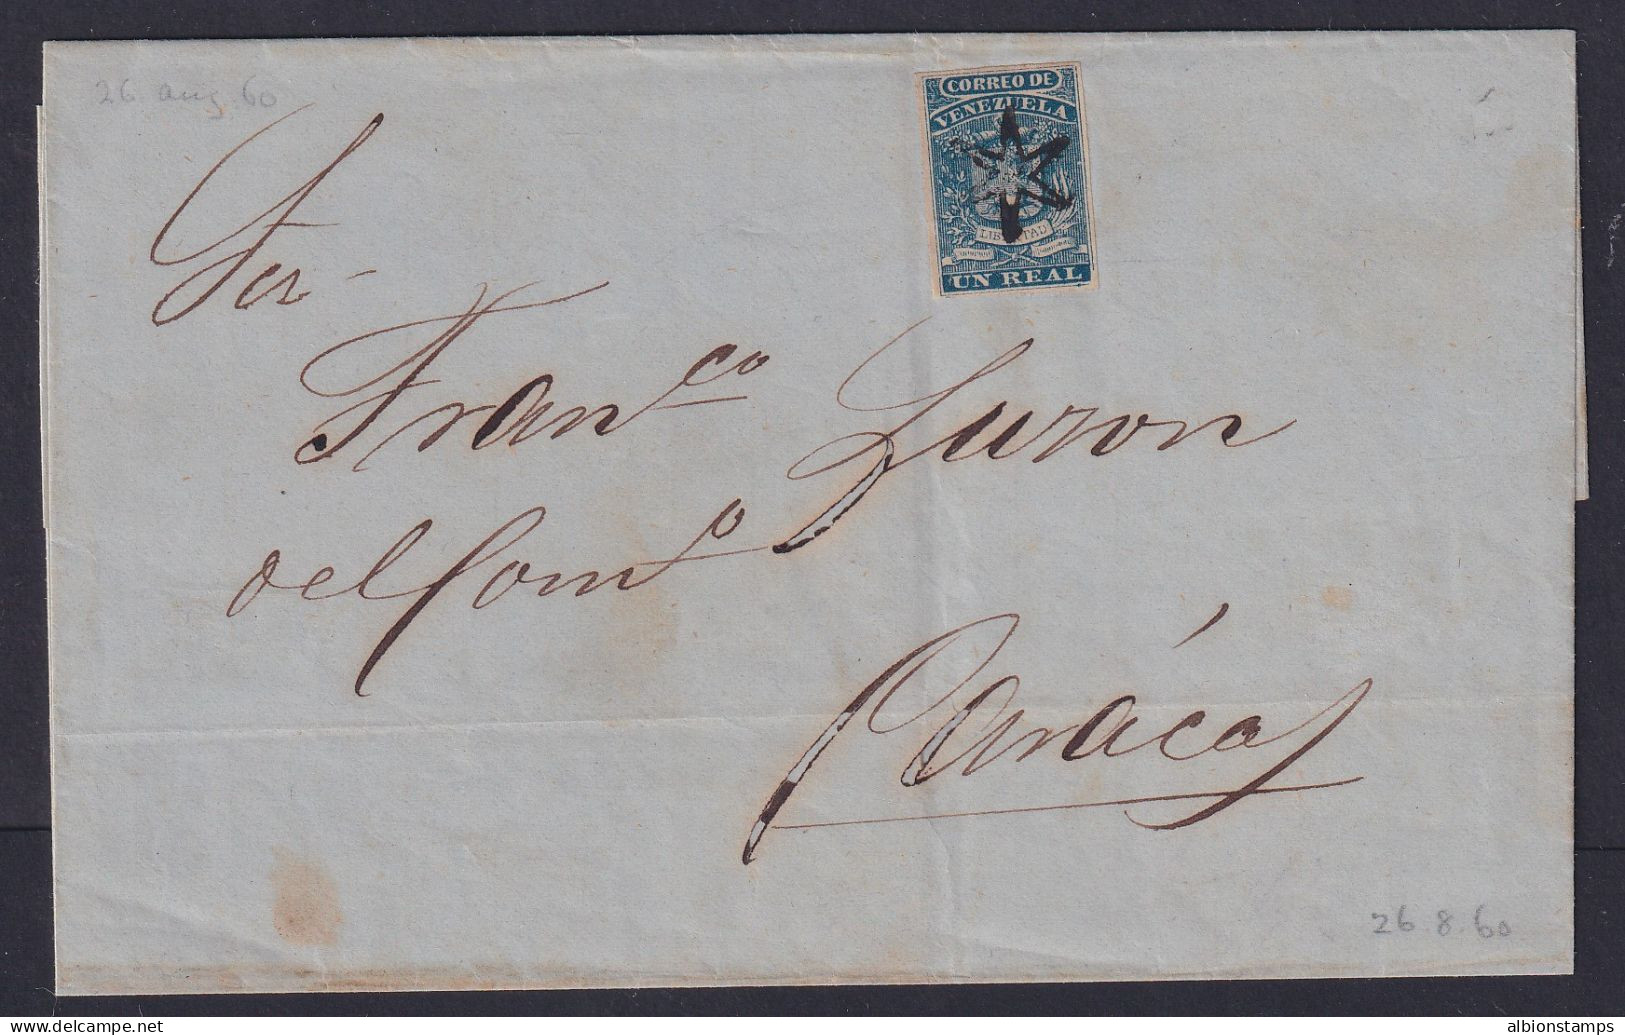 26 aug 60
CORREO DE
VENEZUELA
LIBERTAD
UN REAL
Ser
Franco Luzon
del Como
Carácas
26.8.60
albionstamps